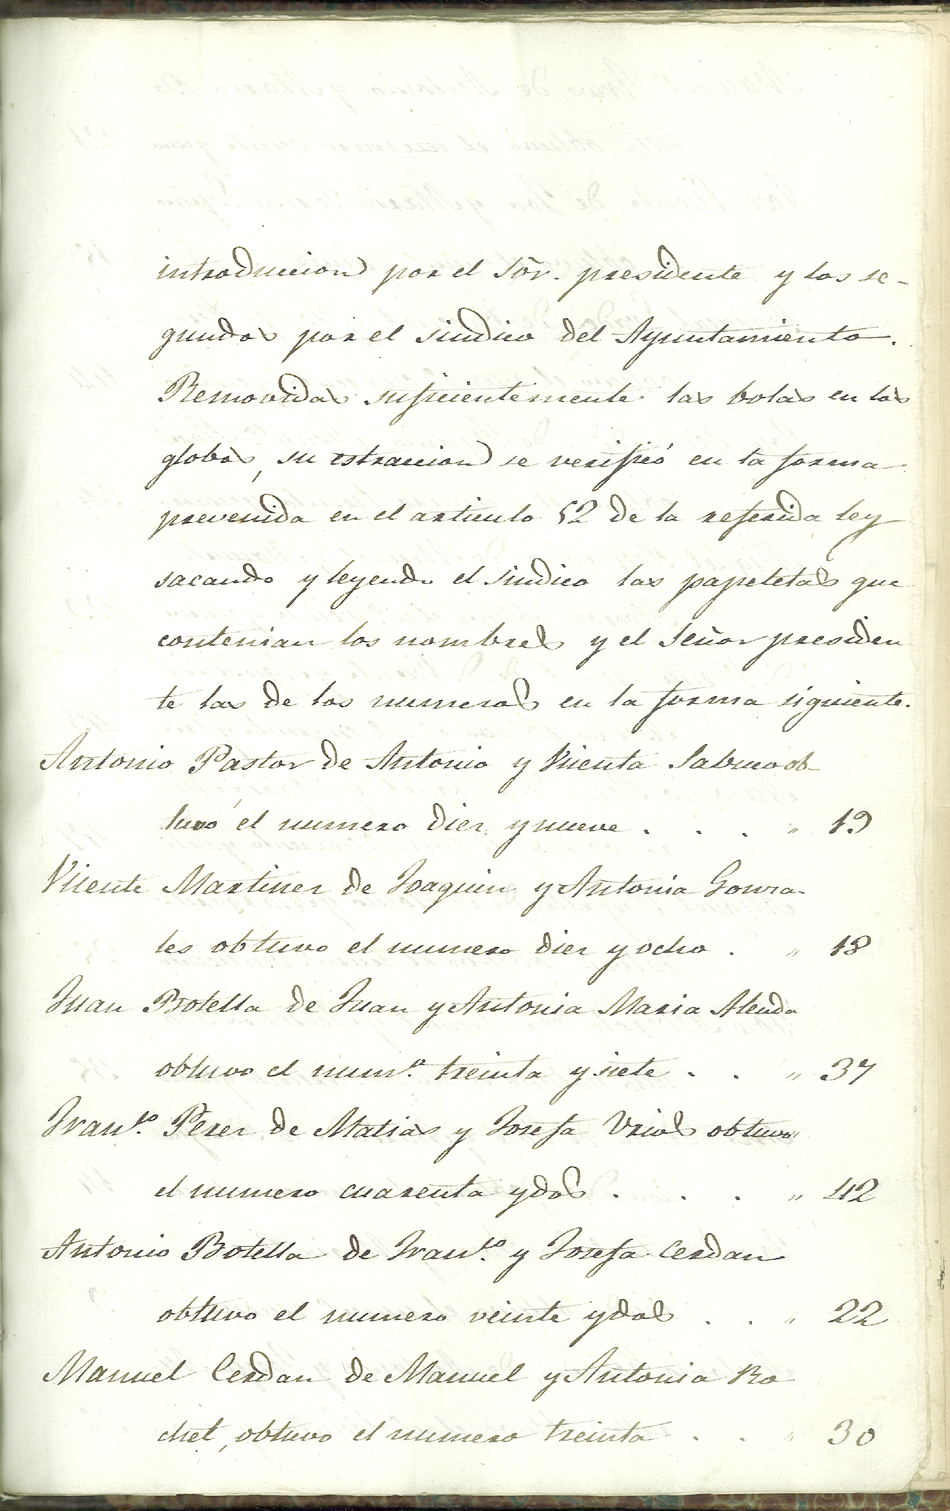 introduccion por el Sõr. presidente y los se-
gundos por el sindico del Ayuntamiento.
Removidas suficientemente las bolas en los
globos, su estraccion se verificó en la forma
prevenida en el articulo 52 de la referida ley
sacando y leyendo el sindico las papeletas que
contenian los nombres y el Señor presiden
te las de los numeros en la forma siguiente.
Antonio Pastor de Antonio y Vicenta Sabuco ob-
tuvo el numero diez y nueve . . . " 19
Vicente Martinez de Joaquin y Antonia Gonza-
les obtuvo el numero diez y ocho . " 18
Juan Botella de Juan y Antonia Maria Alenda
obtuvo el num.º treinta y siete . . " 37
Fran.co Perez de Matias y Josefa Urios obtuvo
el numero cuarenta y dos . . . " 42
Antonio Botella de Fran.co y Josefa Cerdan
obtuvo el numero veinte y dos . . " 22
Manuel Cerdan de Manuel y Antonia Ro
chel, obtuvo el numero treinta . . " 30